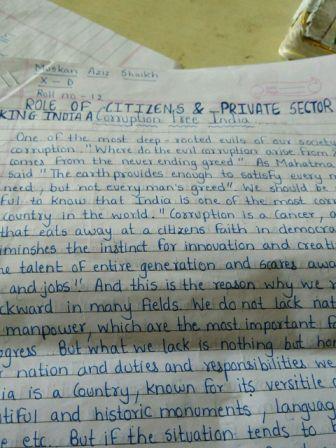 Muskan Aziz Shaikh
X - D
Roll no - 12
ROLE OF CITIZENS & PRIVATE SECTOR
KING INDIA A Corruption free India
One of the most deep-rooted evils of our society
corruption. "Where do the evil corruption arise from?
comes from the never ending greed" As Mahatma
said "The earth provides enough to satisfy every m
need, but not every man's greed". We should be
ful to know that India is one of the most corr
country in the world. "Corruption is a Cancer, a
that eats away at a citizens faith in democra
diminshes the instinct for innovation and creati
he talent of entire generation and scares awa
and jobs". And this is the reason why we r
ckward in many fields. We do not lack nat
manpower, which are the most important f
ogress. But what we lack is nothing but hon
nation and duties and responsibilities we
ia is a Country, known for its versitile
tiful and historic monuments, languag
e etc. But if the situation tends to